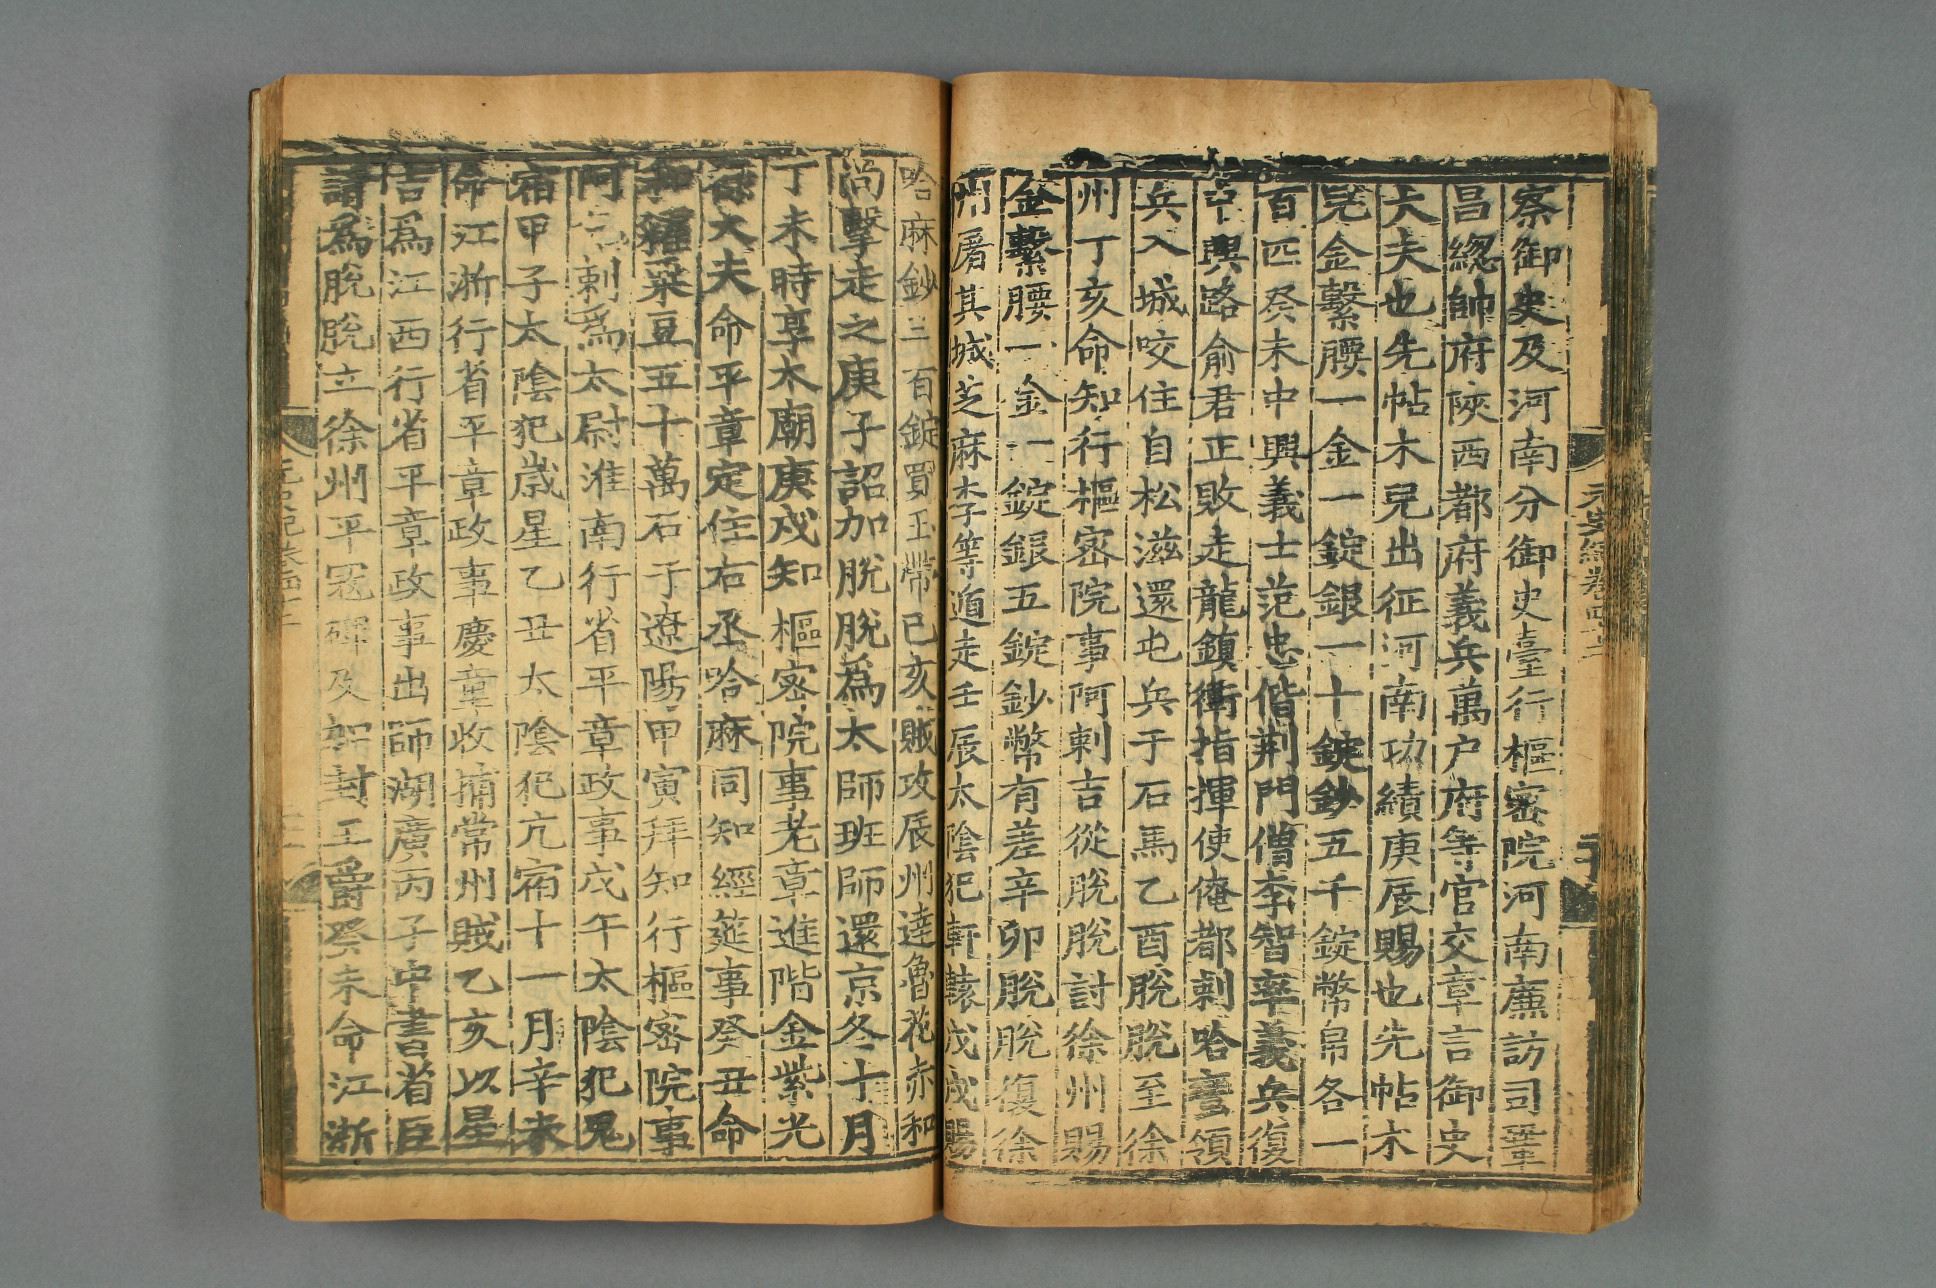 察御史及河南分御史臺行樞密院河南廉訪司鞏
昌緫帥府陝西都府義兵萬户府等官交章言御史
大夫也先帖木兒出征河南功績庚辰賜也先帖木
兒金繫腰一金一錠銀一十錠鈔五千錠幣帛各一
百匹癸未中興義士范忠偕荆門僧李智率義兵復
中興路俞君正敗走龍鎮衛指揮使俺都剌哈蠻領
兵入城咬住自松滋還屯兵于石馬乙酉脫脫至徐
州丁亥命知行樞密院事阿剌吉從脫脫討徐州賜
金繫腰一金一錠銀五錠鈔幣有差辛卯脫脫復徐
州屠其城芝麻李等遁走壬辰太陰犯軒轅戊戌賜
哈麻鈔三百錠買玉帶己亥賊攻辰州達魯花赤和
尚擊走之庚子詔加脫脫爲太師班師還京冬十月
丁未時享太廟庚戌知樞密院事老章進階金紫光
祿大夫命平章定住右丞哈麻同知經筵事癸丑命
和糴粟豆五十萬石于遼陽甲寅拜知行樞密院事
阿乞剌爲太尉淮南行省平章政事戊午太陰犯鬼
宿甲子太陰犯歲星乙丑太陰犯亢宿十一月辛未
命江浙行省平章政事慶童收捕常州賊乙亥以星
吉爲江西行省平章政事出師湖廣丙子中書省臣
請爲脫脫立徐州平冦碑及加封王爵癸未命江浙
元史紀卷四十二